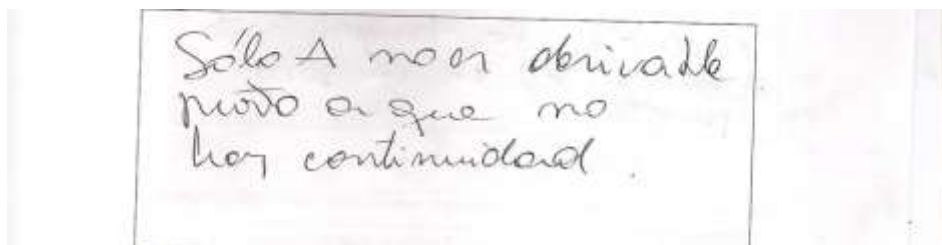 Sólo A no es derivable
puesto a que no
hay continuidad.